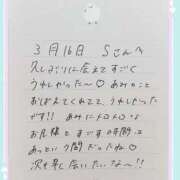 3月16日 Sさんへ
久しぶりに会えてすごく
うれしかった〜♡ あみのこと
おぼえてくれてて、うれしかった
です!! あみにトロトロな
お兄様とすごす時間は
あっという間だったね♡
次も早く会いたいな〜!!